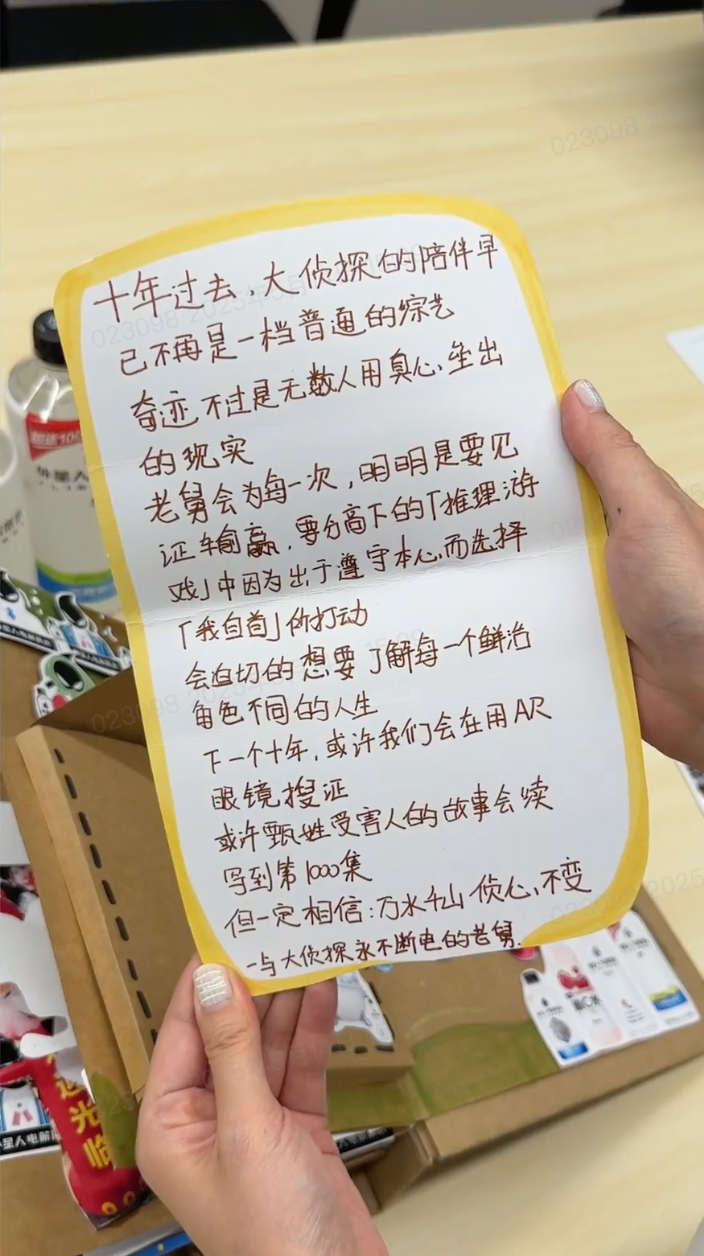 十年过去，大侦探的陪伴早
已不再是一档普通的综艺
奇迹不过是无数人用真心垒出
的现实
老舅会为每一次，明明是要见
证输赢，要分高下的「推理游
戏」中因为出于遵守本心而选择
「我自首」所打动
会迫切的想要了解每一个鲜活
角色不同的人生
下一个十年，或许我们会在用AR
眼镜搜证
或许甄姓受害人的故事会续
写到第1000集
但一定相信：万水千山 侦心不变
-与大侦探永不断电的老舅.
外星人
光临
外星人电解质
023098 2025